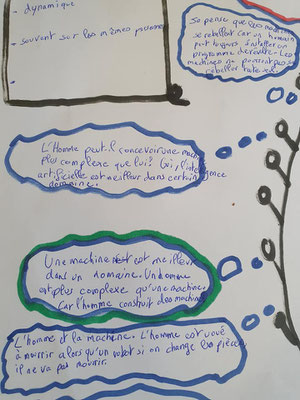 dynamique
- souvent sur les mêmes
-
Je pense que les
se rebellent car un humain
peut toujours installer un
programme Les
machines ne pourront pas se
rebeller
L'Homme peut-il concevoir une machine
plus complexe que lui? Oui, l'intelligence
artificielle est meilleur dans certain
domaine.
Une machine est meilleure
dans un domaine. Un homme
est plus complexe qu'une machine
car l'homme construit des machines
L'homme et la machine. L'homme est voué
à mourrir alors qu'un robot si on change les pièces
il ne va pas mourir.